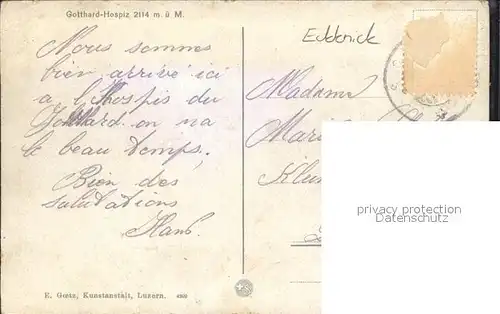 Gotthard-Hospiz 2114 m. ü M.
Eckknick
Nous sommes
bien arrivé ici
a l'Hospis du
Gotthard on na
le beau temps,
Bien des
salutations
Hans.
Madame
Klus
privacy protection
watermark
E. Goetz, Kunstanstalt, Luzern.